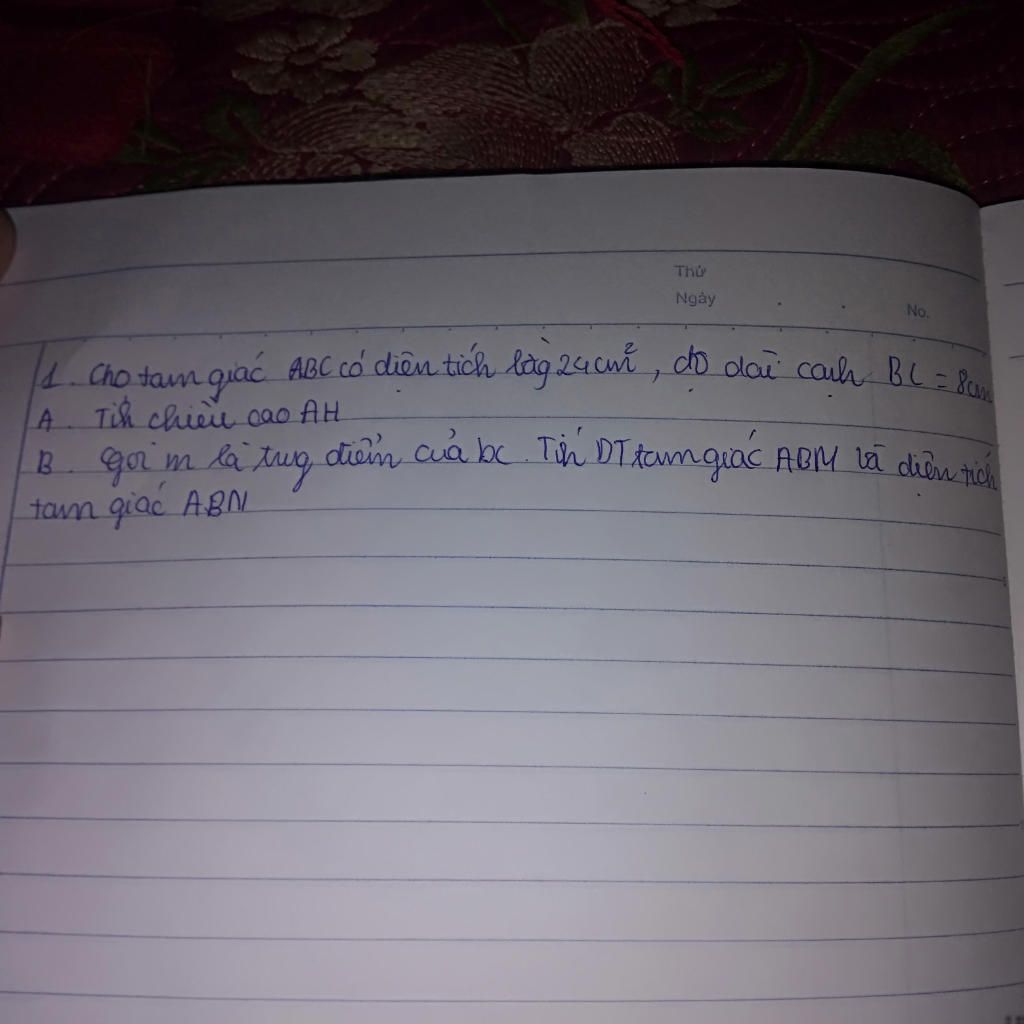 Thứ
Ngày
No.
1. Cho tam giác ABC có diện tích bằg 24 cm², độ dài cạnh BC = 8cm
A. Tíh chiều cao AH
B. Gọi m là trug điểm của bc. Tíh DT tam giác ABM và diện tích
tam giác ABN